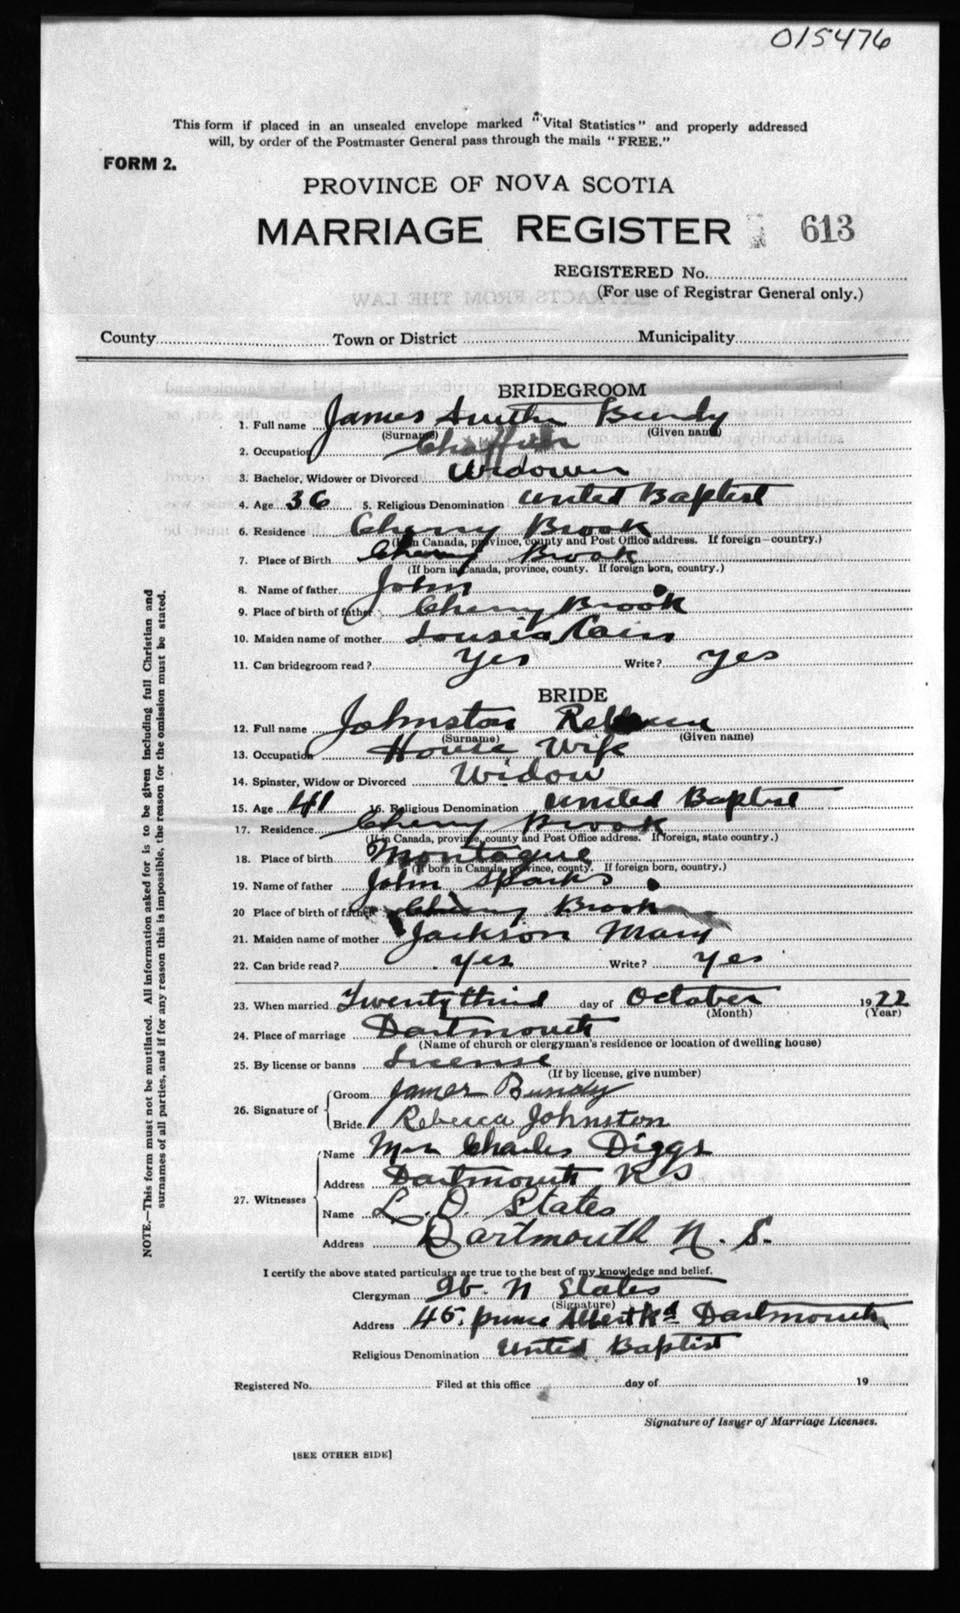 015476
This form if placed in an unsealed envelope marked "Vital Statistics" and properly addressed
will, by order of the Postmaster General pass through the mails "FREE."
FORM 2.
PROVINCE OF NOVA SCOTIA
MARRIAGE REGISTER 613
REGISTERED No.
(For use of Registrar General only.)
County Town or District Municipality
BRIDEGROOM
1. Full name James Bundy
(Surname) (Given name)
2. Occupation
3. Bachelor, Widower or Divorced Widower
4. Age 36 5. Religious Denomination United Baptist
6. Residence Cherry Brook
(If in Canada, province, county and Post Office address. If foreign—country.)
7. Place of Birth Cherry Brook
(If born in Canada, province, county. If foreign born, country.)
8. Name of father John
9. Place of birth of father Cherry Brook
10. Maiden name of mother
11. Can bridegroom read? Yes Write? Yes
BRIDE
12. Full name Johnston
(Surname) (Given name)
13. Occupation House Wife
14. Spinster, Widow or Divorced Widow
15. Age 41 16. Religious Denomination United Baptist
17. Residence Cherry Brook
(If in Canada, province, county and Post Office address. If foreign, state country.)
18. Place of birth Montague
(If born in Canada, province, county. If foreign born, country.)
19. Name of father John Sparks
20 Place of birth of father Cherry Brook
21. Maiden name of mother Jackson Mary
22. Can bride read? yes Write? yes
23. When married Twenty third day of October 1922
(Month) (Year)
24. Place of marriage Dartmouth
(Name of church or clergyman's residence or location of dwelling house)
25. By license or banns License
(If by license, give number)
26. Signature of Groom James Bundy
Bride Rebecca Johnston
27. Witnesses Name Mrs Charles Diggs
Address Dartmouth N S
Name L. D. States
Address Dartmouth N. S.
I certify the above stated particulars are true to the best of my knowledge and belief.
Clergyman W. N States
(Signature)
Address 45 Prince Albert Rd Dartmouth
Religious Denomination United Baptist
Registered No. Filed at this office day of 19
Signature of Issuer of Marriage Licenses.
[SEE OTHER SIDE]
NOTE.—This form must not be mutilated. All information asked for is to be given including full Christian and
surnames of all parties, and if for any reason this is impossible, the reason for the omission must be stated.